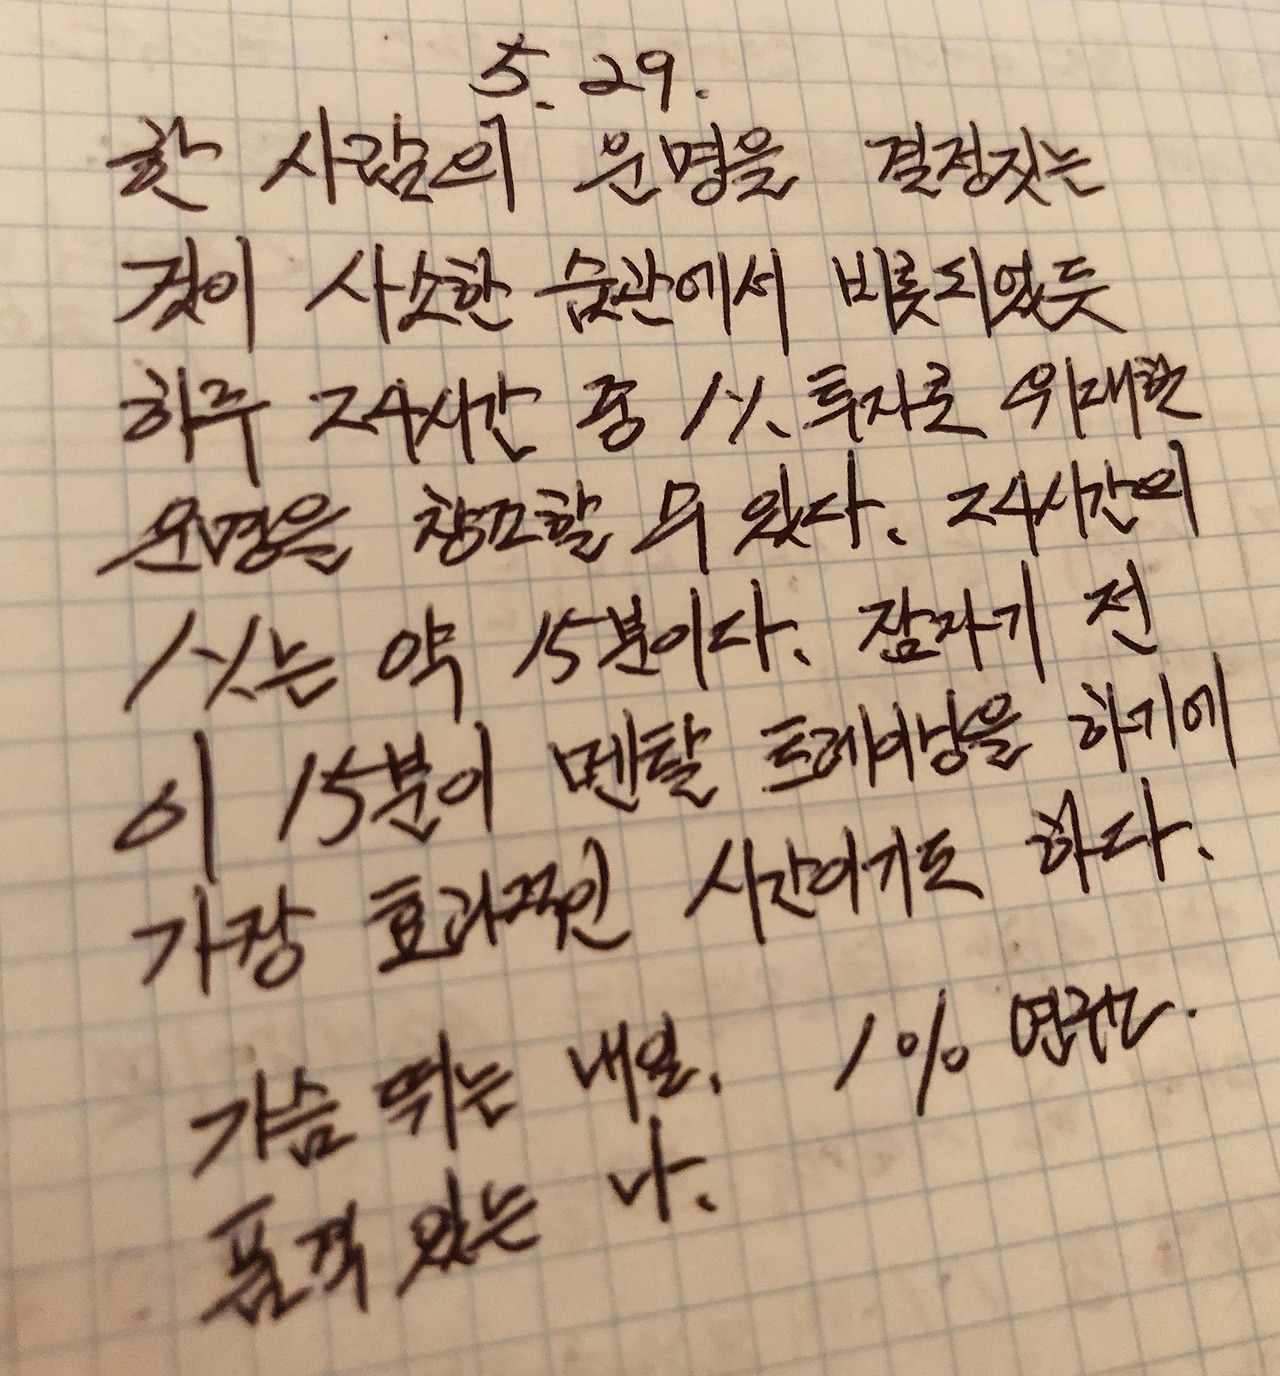 5. 29.
한 사람의 운명을 결정짓는
것이 사소한 습관에서 비롯되었듯
하루 24시간 중 1% 투자로 위대한
운명을 창조할 수 있다. 24시간의
1%는 약 15분이다. 잠자기 전
이 15분이 멘탈 트레이닝을 하기에
가장 효과적인 시간이기도 하다.
가슴 뛰는 내일. 1%
품격 있는 나.